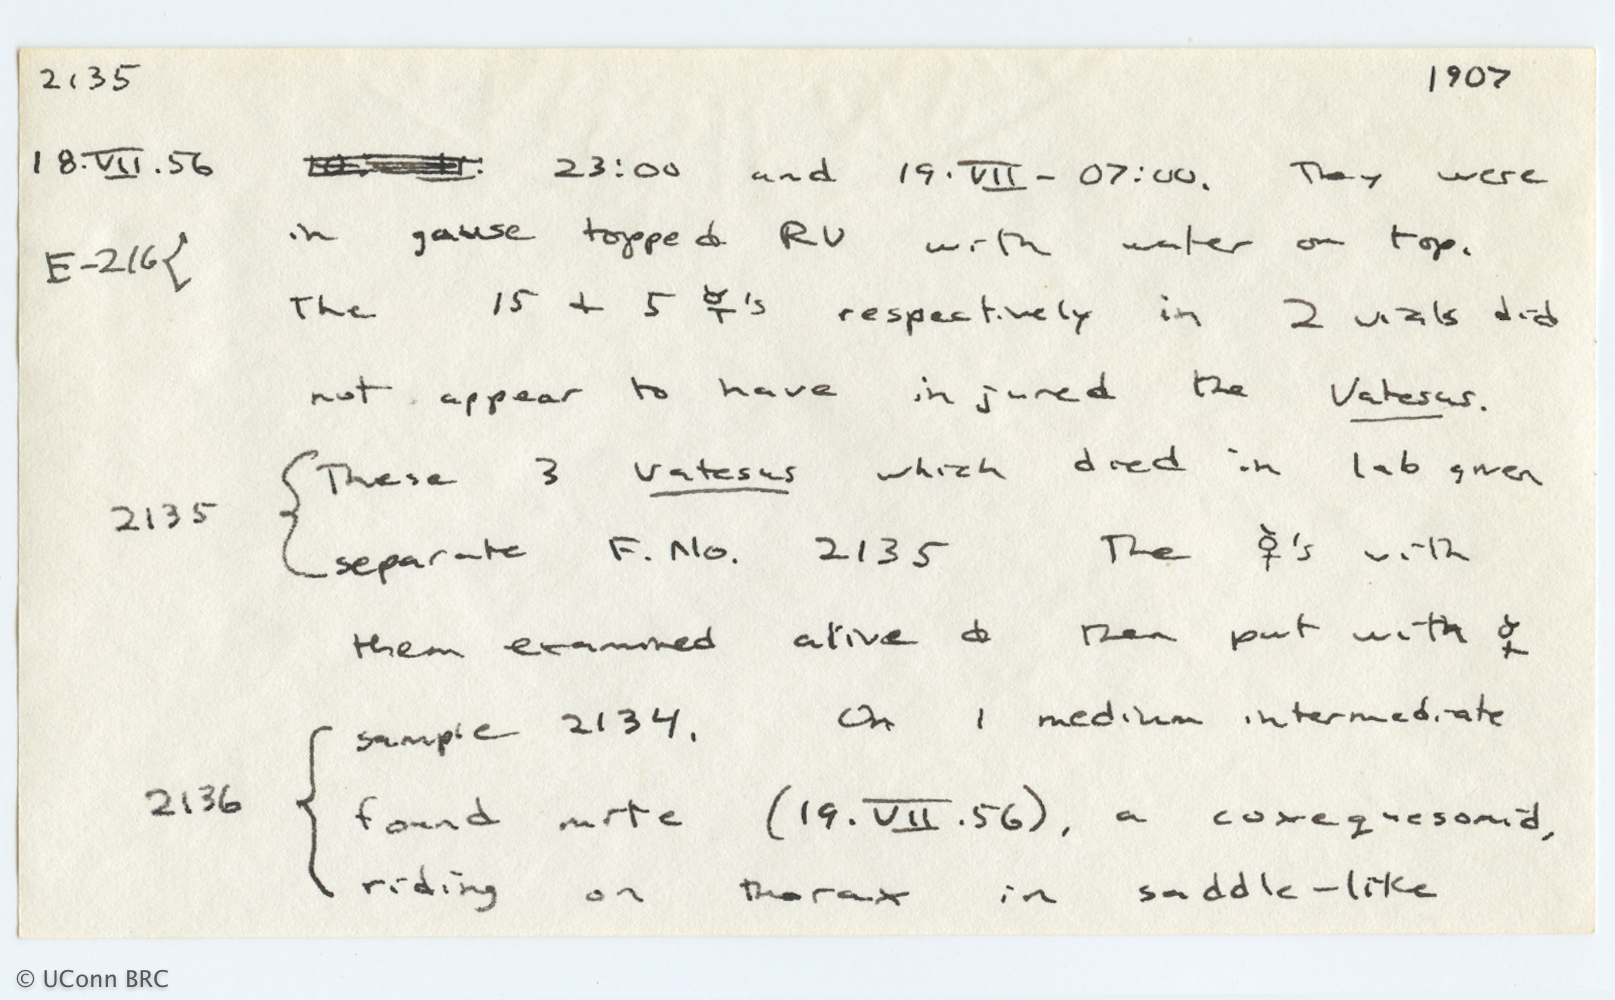 2135 1907
18.VII.56 23:00 and 19.VII - 07:00. They were
in gause topped RV with water on top.
E-216{
The 15 + 5 ☿'s respectively in 2 vials did
not appear to have injured the Vatesus.
{These 3 Vatesus which died in lab given
2135
separate F. No. 2135 The ☿'s with
them examined alive & then put with ☿
sample 2134. On 1 medium intermediate
2136 { found mite (19.VII.56), a coxequesomid,
riding on thorax in saddle-like
© UConn BRC